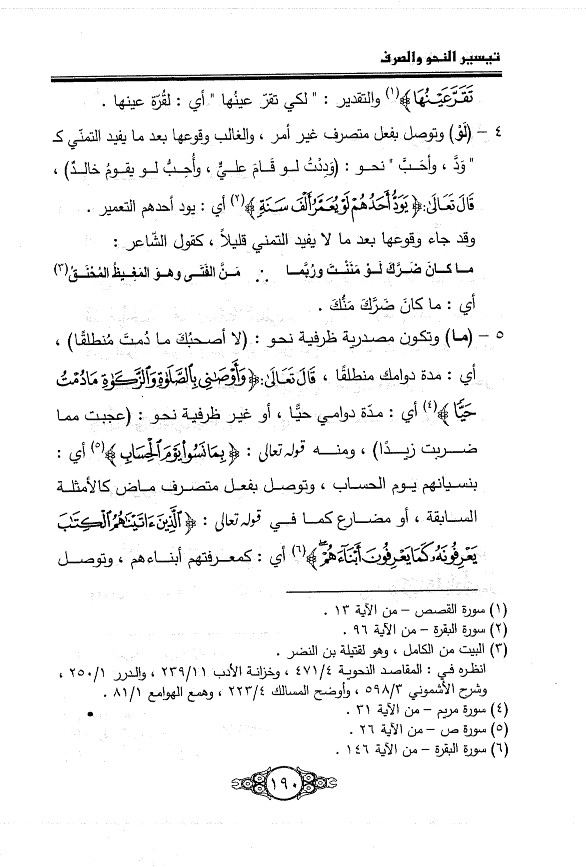 تيسير النحو والصرف
تَقَرَّ عَيْنُهَا ﴾(١) والتقدير : " لكي تقرّ عينُها " أي : لقُرّة عينها .
٤ – (لَوْ) وتوصل بفعل متصرف غير أمر ، والغالب وقوعها بعد ما يفيد التمنّي كـ
" وَدَّ ، وأحَبَّ " نحو : (وَدِدْتُ لو قَامَ عليٌّ ، وأُحِبُّ لو يقومُ خالدٌ) ،
قَالَ تَعَالَىٰ: ﴿ يَوَدُّ أَحَدُهُمْ لَوْ يُعَمَّرُ أَلْفَ سَنَةٍ ﴾(٢) أي : يود أحدهم التعمير .
وقد جاء وقوعها بعد ما لا يفيد التمني قليلاً ، كقول الشّاعر :
ما كانَ ضَرَّكَ لَوْ مَنَنْتَ ورُبَّما ∴ مَنَّ الفَتَى وهوَ المَغِيظُ المُحْنَقُ(٣)
أي : ما كانَ ضَرَّكَ مَنُّكَ .
٥ – (ما) وتكون مصدرية ظرفية نحو : (لا أصحبُكَ ما دُمتَ مُنطلقًا) ،
أي : مدة دوامك منطلقا ، قَالَ تَعَالَىٰ: ﴿ وَأَوْصَٰنِى بِٱلصَّلَوٰةِ وَٱلزَّكَوٰةِ مَا دُمْتُ
حَيًّا ﴾(٤) أي : مدّة دوامي حيًّا ، أو غير ظرفية نحو : (عجبت مما
ضـربت زيـدًا) ، ومنـه قوله تعالى : ﴿ بِمَا نَسُوا۟ يَوْمَ ٱلْحِسَابِ ﴾(٥) أي :
بنسيانهم يوم الحساب ، وتوصل بفعل متصرف ماض كالأمثلة
السابقة ، أو مضارع كما في قوله تعالى : ﴿ ٱلَّذِينَ ءَاتَيْنَٰهُمُ ٱلْكِتَٰبَ
يَعْرِفُونَهُۥ كَمَا يَعْرِفُونَ أَبْنَآءَهُمْ ﴾(٦) أي : كمعرفتهم أبناءهم ، وتوصل
(١) سورة القصص – من الآية ١٣ .
(٢) سورة البقرة – من الآية ٩٦ .
(٣) البيت من الكامل ، وهو لقتيلة بن النضر .
انظره في : المقاصد النحوية ٤٧١/٤ ، وخزانة الأدب ٢٣٩/١١ ، والدرر ٢٥٠/١ ،
وشرح الأشموني ٥٩٨/٣ ، وأوضح المسالك ٢٢٣/٤ ، وهمع الهوامع ٨١/١ .
(٤) سورة مريم – من الآية ٣١ .
(٥) سورة ص – من الآية ٢٦ .
(٦) سورة البقرة – من الآية ١٤٦ .
١٩٠